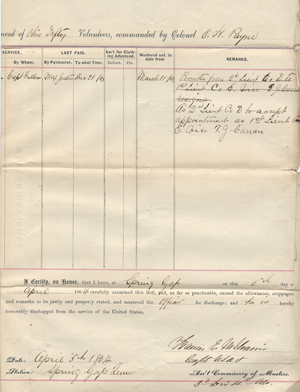 ment of Ohio Infty Volunteers, commanded by Colonel O. H. Payne
SERVICE. LAST PAID. Am't for Clothing Advanced. Mustered out, to date from REMARKS.
By Whom. By Paymaster. To what Time. Dollars. Cts.
Capt Maj Dec 31 March 11 Promoted from 2d Lieut Co D to
1st Lieut Co E Vice T J
As 2 Lieut Co D to accept
appointment as 1st Lieut
E Vice T. J. Carran
I Certify, on Honor, that I have, at Spring Gap on this day
April 1864 carefully examined this Roll, and, as far as practicable, caused the allowances, stoppages,
and remarks to be justly and properly stated, and mustered the Officer for discharge; and he is hereby
honorably discharged from the service of the United States.
Date: April 5th 1864
Station: Spring Gap Tenn
Capt
Ass't Commissary of Musters.